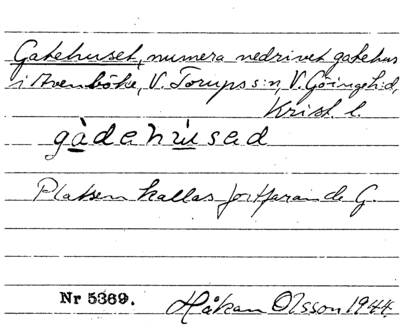 Gatehuset, numera nedrivet gatehus
i Avenböke, V. Torups s:n, V. Göinge h:d,
Krist. l.
gàdehùsəd
Platsen kallas fortfarande G.
Nr 5369. Håkan Olsson 1944.